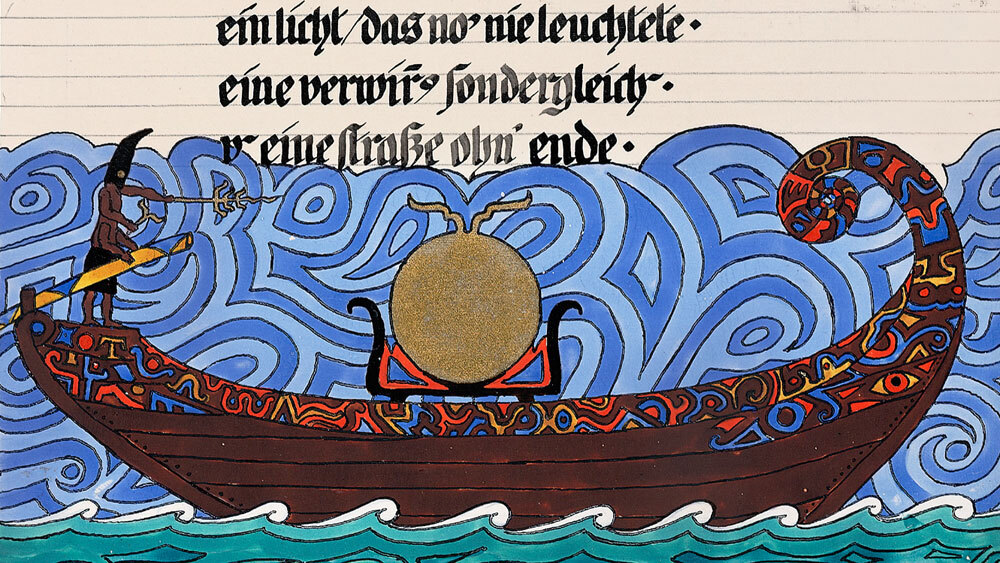 ein licht / das no' nie leuchtete.
eine verwir̄g sondergleich'.
v' eine straße ohn' ende.